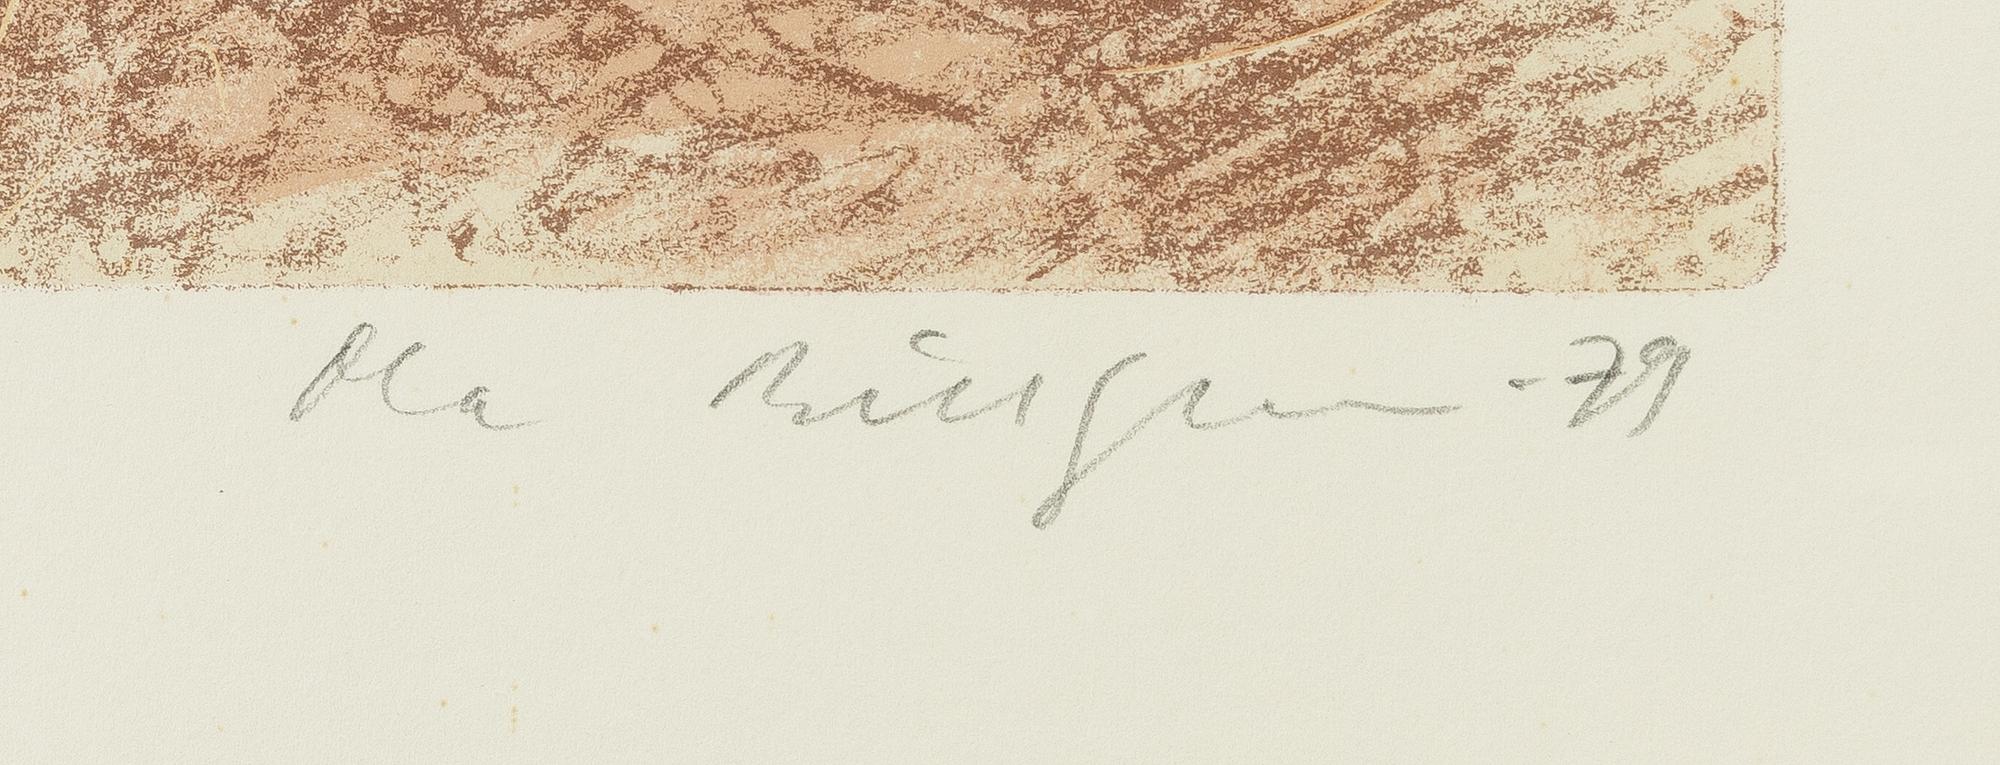 Ola Billgren -79